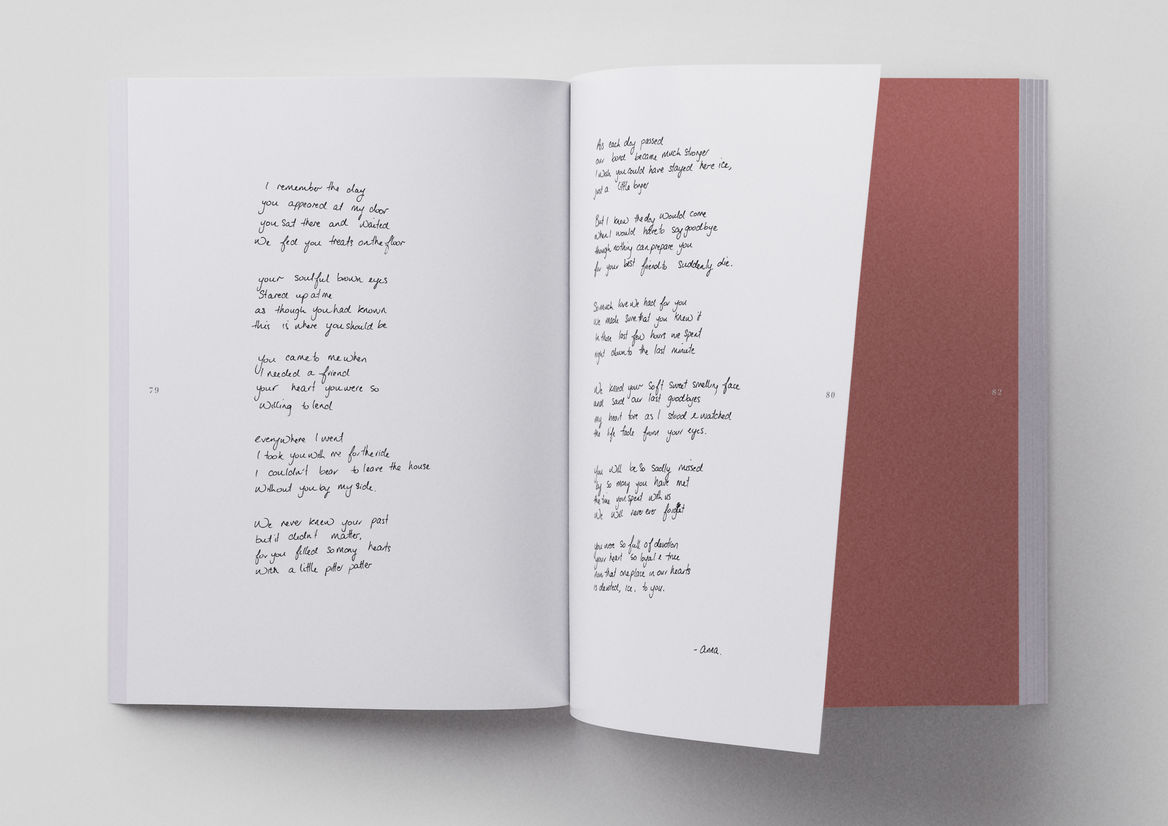 I remember the day
you appeared at my door
you sat there and waited
We fed you treats on the floor
your soulful brown eyes
Stared up at me
as though you had known
this is where you should be
you came to me when
I needed a friend
your heart you were so
Willing to lend
everywhere I went
I took you with me for the ride
I couldn't bear to leave the house
Without you by my side.
We never knew your past
but it didn't matter,
for you filled so many hearts
With a little pitter patter
79
As each day passed
our bond became much stronger
I wish you could have stayed here ice,
just a little longer
But I knew the day would come
when I would have to say goodbye
though nothing can prepare you
for your best friend to suddenly die.
So much love we had for you
We made sure that you knew it
in those last few hours we spent
right down to the last minute
We kissed your soft sweet smelling face
and said our last goodbyes
my heart tore as I stood & watched
the life fade from your eyes.
You will be so sadly missed
by so many you have met
the time you spent with us
We will never ever forget
you were so full of devotion
your heart so loyal & true
now that one place in our hearts
is devoted, ice. to you.
- anna.
80
82